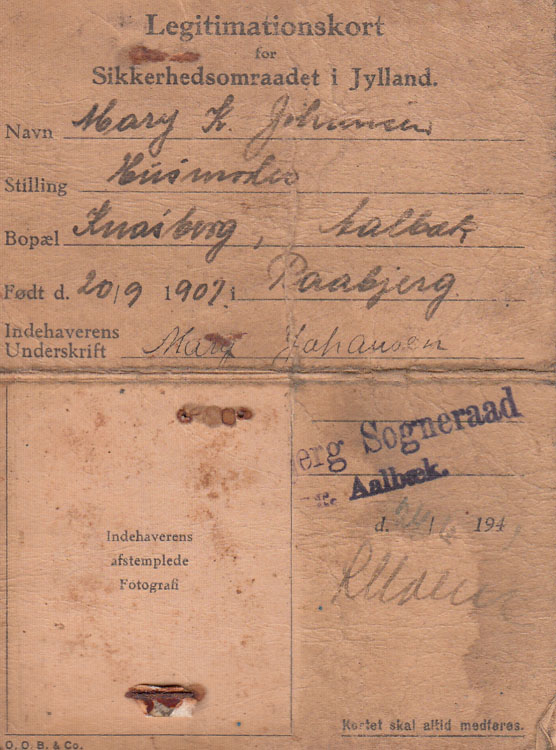 Legitimationskort
for
Sikkerhedsomraadet i Jylland.
Navn Mary K. Johansen
Stilling Husmoder
Bopæl Knasborg, Aalbæk
Født d. 20/9 1907 i Raabjerg
Indehaverens
Underskrift Mary Johansen
erg Sogneraad
Aalbæk.
d. 194
Indehaverens
afstemplede
Fotografi
Kortet skal altid medføres.
O. O. B. & Co.